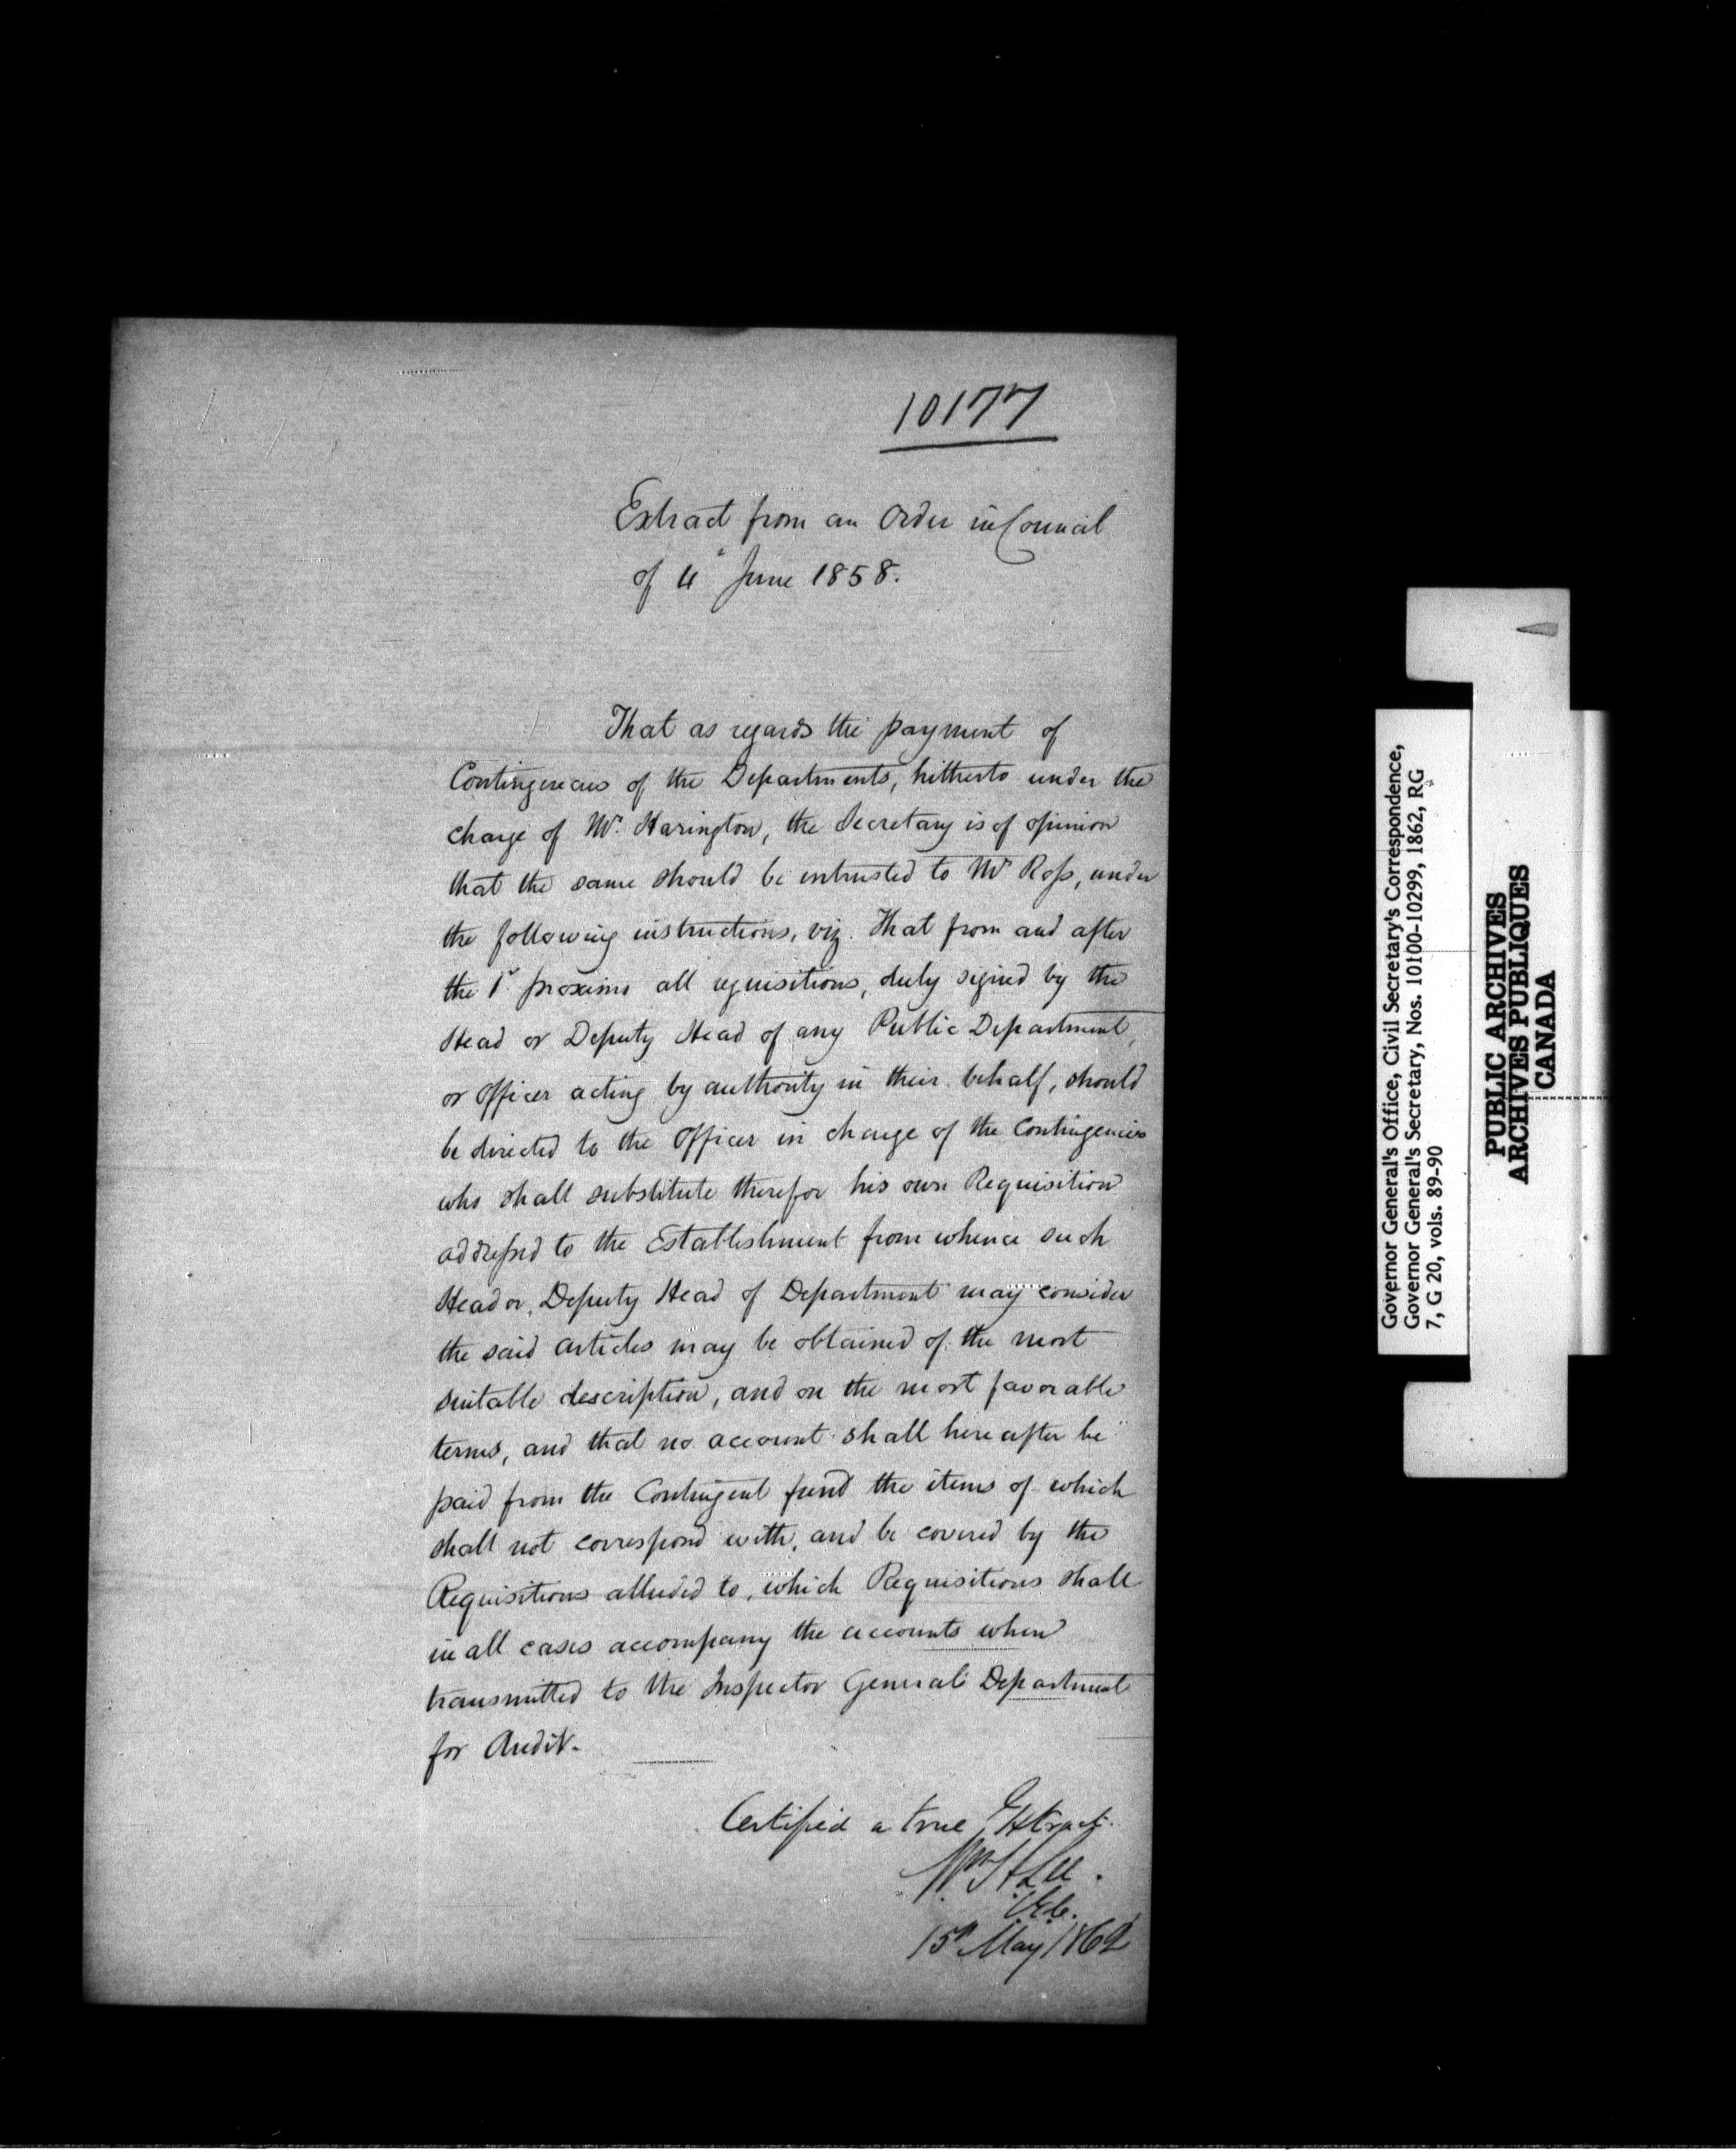 10177
Extract from an Order in Council
of 4" June 1858.
That as regards the payment of
Contingencies of the Departments, hitherto under the
charge of Mr. Harington, the Secretary is of opinion
that the same should be intrusted to Mr Ross, under
the following instructions, viz. That from and after
the 1st proximo all requisitions, duly signed by the
Head or Deputy Head of any Public Department,
or Officer acting by authority in their behalf, should
be directed to the Officer in charge of the Contingencies
who shall substitute therefor his own Requisition
addressed to the Establishment from whence such
Head or Deputy Head of Department may consider
the said articles may be obtained of the most
suitable description, and on the most favorable
terms, and that no account shall hereafter be
paid from the Contingent fund the items of which
shall not correspond with, and be covered by the
Requisitions alluded to, which Requisitions shall
in all cases accompany the accounts when
transmitted to the Inspector General's Department
for Audit.
Certified a true Extract.
Wm H Lee.
C.E.C.
15th May 1862
Governor General's Office, Civil Secretary's Correspondence,
Governor General's Secretary, Nos. 10100-10299, 1862, RG
7, G 20, vols. 89-90
PUBLIC ARCHIVES
ARCHIVES PUBLIQUES
CANADA